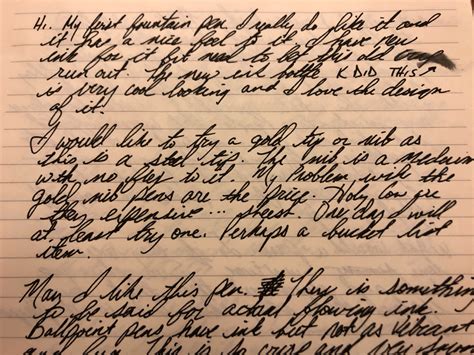 Hi. My first fountain pen. I really do like it and
it has a nice feel to it. I have new
ink for it but need to let this old
run out. The new ink bottle K DID THIS
is very cool looking and I love the design
of it.
I would like to try a gold tip or nib as
this is a steel tip. The nib is a medium
with no flex to it. My Problem with the
gold nib pens are the price. Holy
they expensive ... sheesh. One day I will
at least try one. Perhaps a bucket list
item.
Man I like this pen. There is something
to be said for actual flowing ink.
Ballpoint pens have ink but not as vibrant
and fun. This is so crisp and